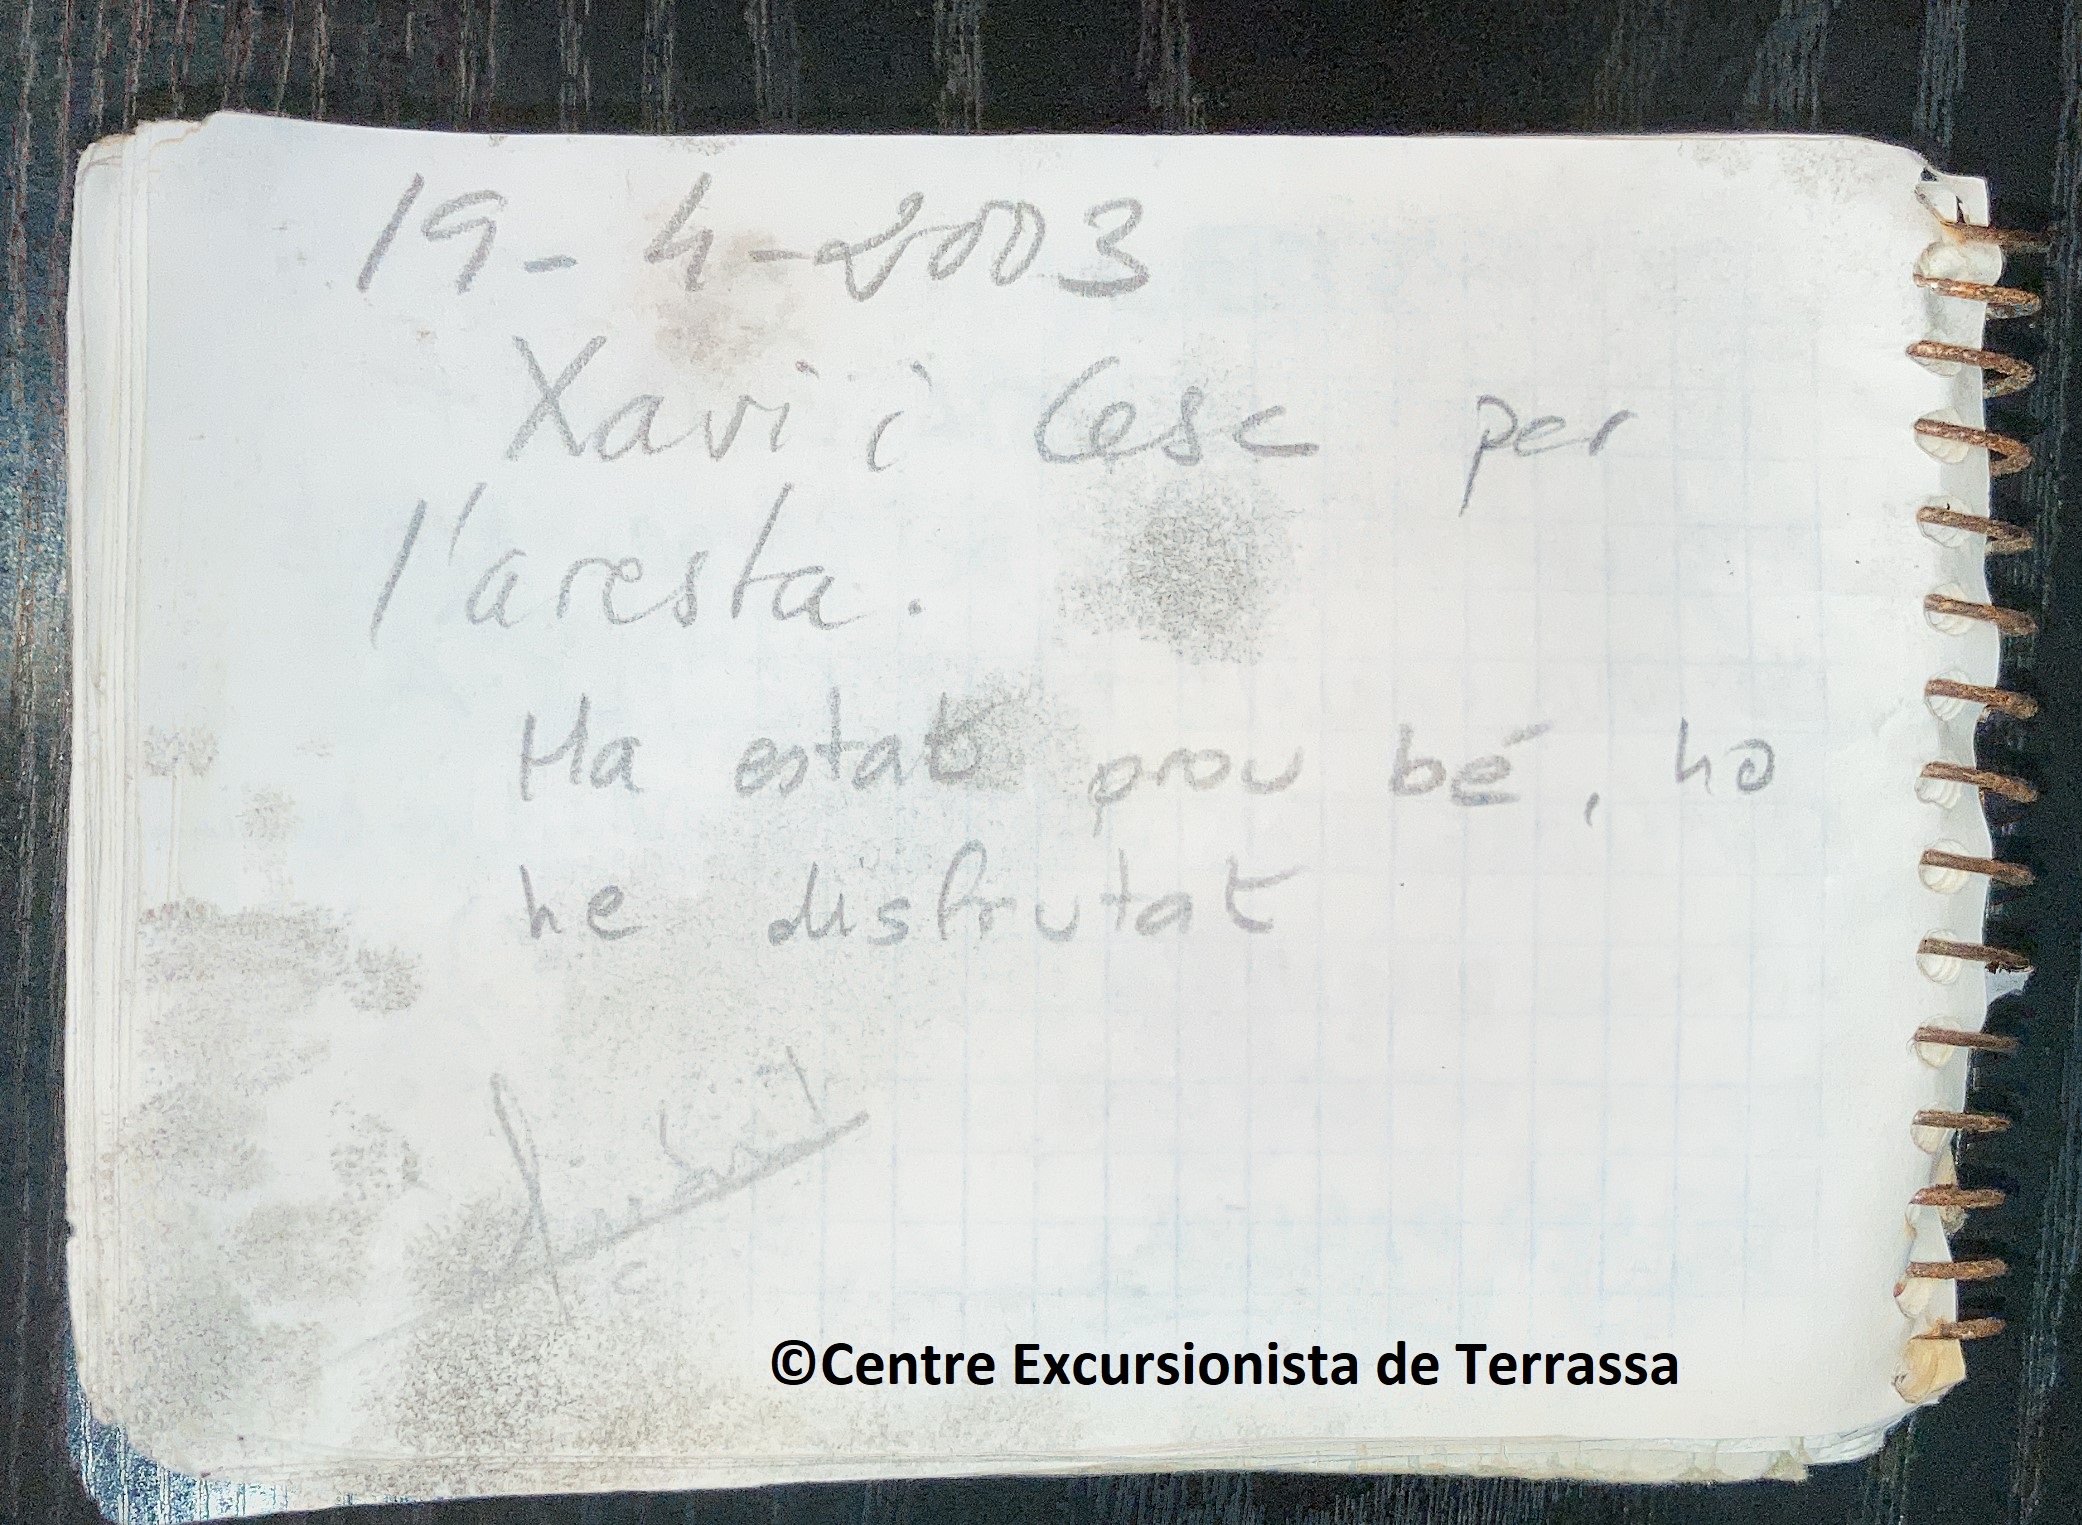 19-4-2003
Xavi i Cesc per
l'aresta.
Ha estat prou bé, ho
he disfrutat
©Centre Excursionista de Terrassa